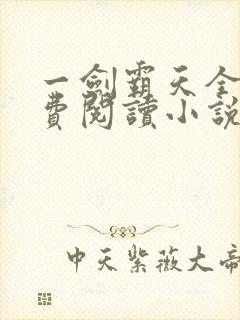 一劍霸天全
費閱讀小說
中天紫薇大帝